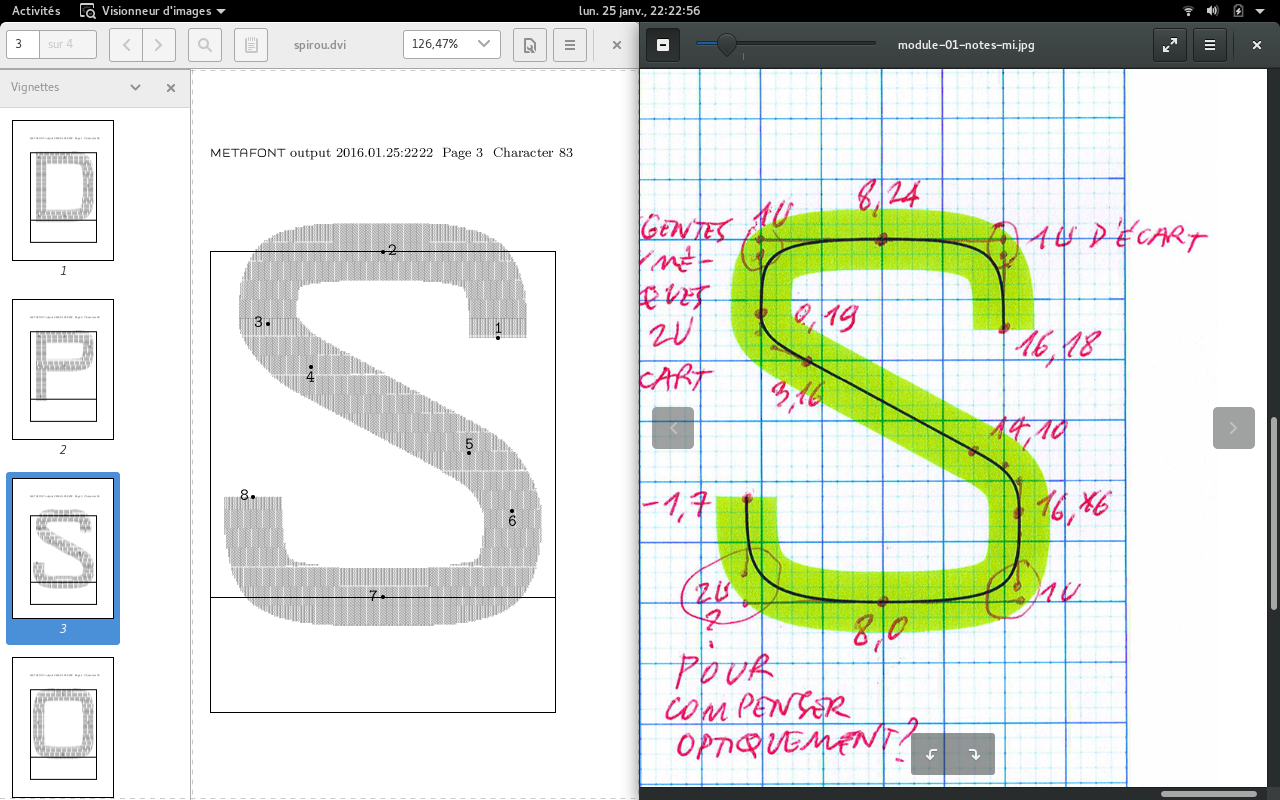 Activités
Visionneur d'images
lun. 25 janv., 22:22:56
3
sur 4
spirou.dvi
126,47%
Vignettes
1
2
3
METAFONT output 2016.01.25:2222 Page 3 Character 83
2
3
1
4
5
8
6
7
module-01-notes-mi.jpg
8,24
1U
GENTES
1U D'ÉCART
QUES
0,19
2U
16,18
CART
3,16
14,10
-1,7
2U
?
1U
8,0
POUR
COMPENSER
OPTIQUEMENT?